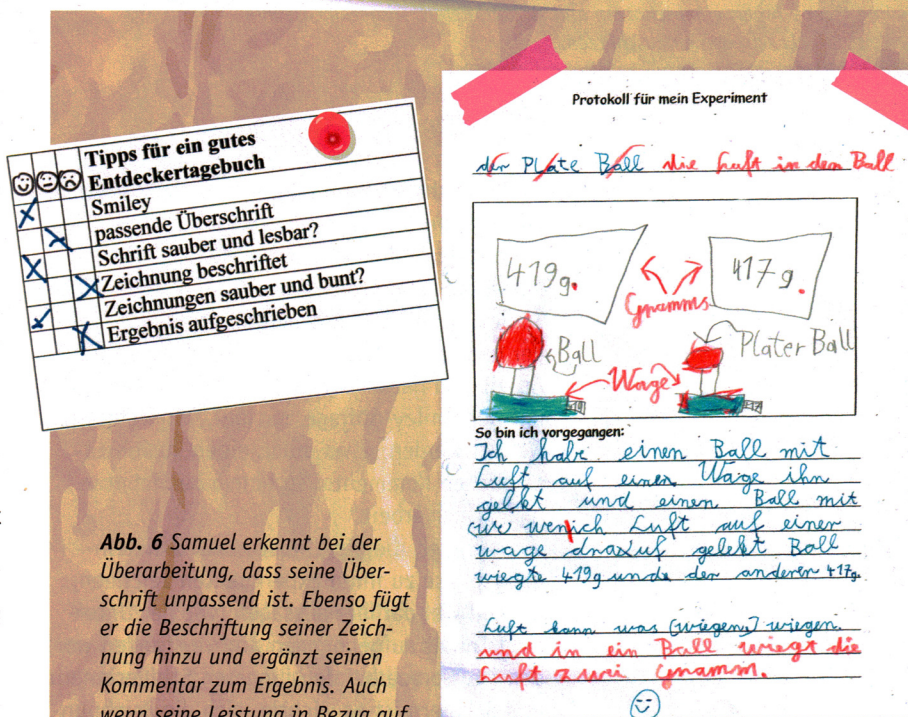 Tipps für ein gutes
Entdeckertagebuch
Smiley
passende Überschrift
Schrift sauber und lesbar?
Zeichnung beschriftet
Zeichnungen sauber und bunt?
Ergebnis aufgeschrieben
Abb. 6 Samuel erkennt bei der
Überarbeitung, dass seine Über-
schrift unpassend ist. Ebenso fügt
er die Beschriftung seiner Zeich-
nung hinzu und ergänzt seinen
Kommentar zum Ergebnis. Auch
wenn seine Leistung in Bezug auf
Protokoll für mein Experiment
der Plate Ball die Luft in den Ball
419g. 417g.
Gramms
Ball Plater Ball
Wage
So bin ich vorgegangen:
Ich habe einen Ball mit
Luft auf einen Wage ihn
gelekt und einen Ball mit
wenich Luft auf einer
wage gelekt Ball
wiegte 419g und der anderen 417g.
Luft kann was (wiegen) wiegen.
und in ein Ball wiegt die
Luft zwei Gramm.